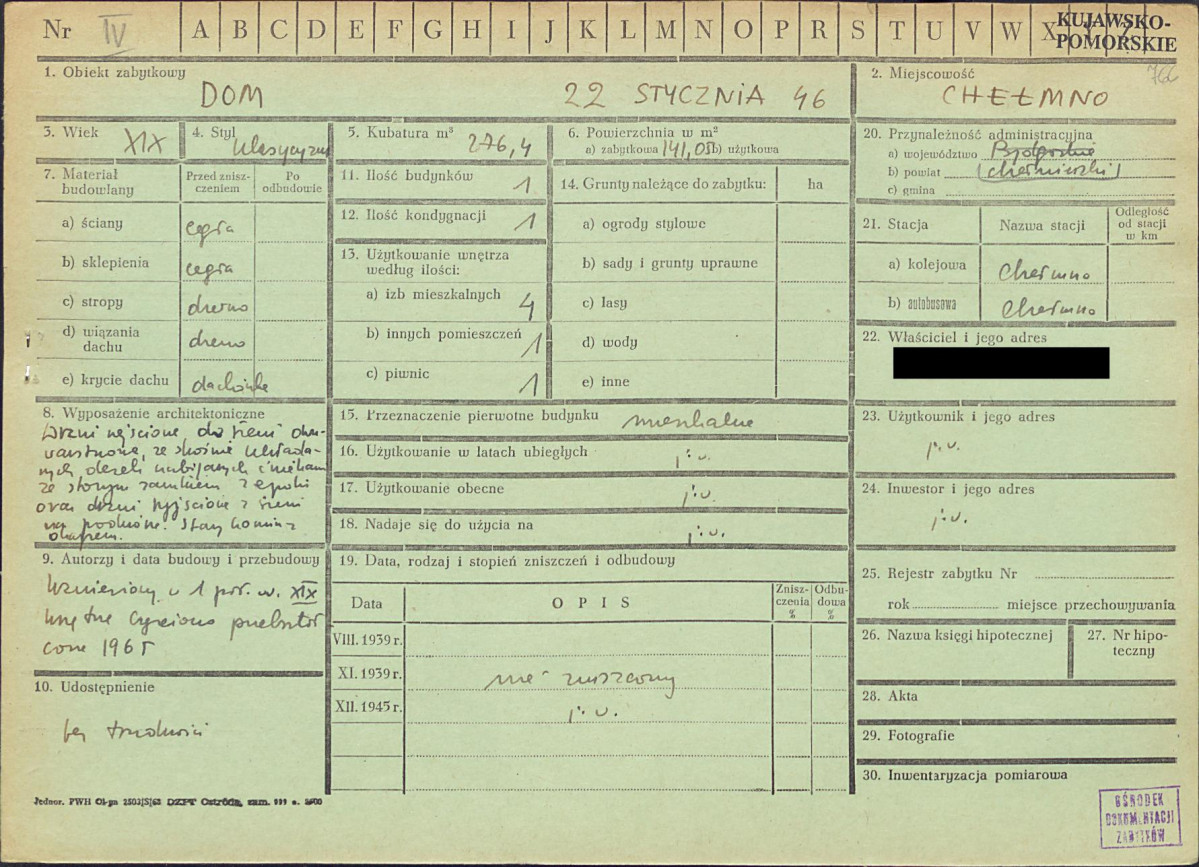 Nr IV A B C D E F G H I J K L M N O P R S T U V W X Y Z
KUJAWSKO-
POMORSKIE
766
1. Obiekt zabytkowy
DOM 22 STYCZNIA 46
2. Miejscowość
CHEŁMNO
3. Wiek XIX
4. Styl klasycyzm
5. Kubatura m³
276,4
6. Powierzchnia w m²
a) zabytkowa 141,05 b) użytkowa
20. Przynależność administracyjna
a) województwo Bydgoskie
b) powiat (chełmiński)
c) gmina
7. Materiał
budowlany
Przed znisz-
czeniem
Po
odbudowie
a) ściany cegła
b) sklepienia cegła
c) stropy drewno
d) wiązania
dachu drewno
e) krycie dachu dachówka
11. Ilość budynków 1
12. Ilość kondygnacji 1
13. Użytkowanie wnętrza
według ilości:
a) izb mieszkalnych 4
b) innych pomieszczeń 1
c) piwnic 1
14. Grunty należące do zabytku: ha
a) ogrody stylowe
b) sady i grunty uprawne
c) lasy
d) wody
e) inne
21. Stacja Nazwa stacji
Odległość
od stacji
w km
a) kolejowa Chełmno
b) autobusowa Chełmno
22. Właściciel i jego adres
8. Wyposażenie architektoniczne
Drzwi wejściowe do sieni dwu-
warstwowe, ze skośnie układa-
nych desek nabijanych ćwiekami
ze starym zamkiem z epoki
oraz drzwi wyjściowe z sieni
na podwórze. Stary komin z
okapem.
15. Przeznaczenie pierwotne budynku mieszkalne
16. Użytkowanie w latach ubiegłych j.w.
17. Użytkowanie obecne j.w.
18. Nadaje się do użycia na j.w.
23. Użytkownik i jego adres
j.w.
24. Inwestor i jego adres
j.w.
9. Autorzy i data budowy i przebudowy
Wzniesiony w 1 poł. w. XIX
wnętrze częściowo przekształ
cone 1965
19. Data, rodzaj i stopień zniszczeń i odbudowy
Data OPIS
Znisz-
czenia
%
Odbu-
dowa
%
VIII. 1939 r.
XI. 1939 r. nie zniszczony
XII. 1945 r. j.w.
25. Rejestr zabytku Nr
rok miejsce przechowywania
26. Nazwa księgi hipotecznej
27. Nr hipo-
teczny
10. Udostępnienie
bez trudności
28. Akta
29. Fotografie
30. Inwentaryzacja pomiarowa
Jednor. PWH Ol-pn 2503/S/63 DZPT Ostróda, zam. 999 n. 3500
OŚRODEK
DOKUMENTACJI
ZABYTKÓW